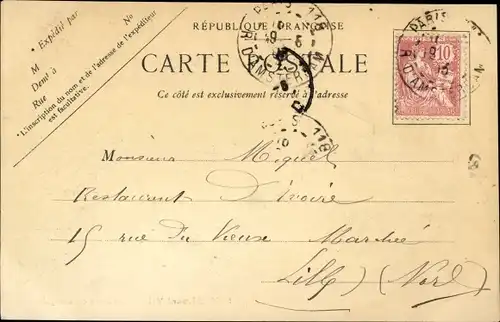 RÉPUBLIQUE FRANÇAISE
CARTE POSTALE
Ce côté est exclusivement réservé à l'adresse
Expédié par
No
M
Demt à
Rue
"L'inscription du nom et de l'adresse de l'expéditeur
est facultative."
PARIS 118
R. D'AMSTERDAM
10
Monsieur Miquel
Restaurant d'Ivoire
15 rue du Vieux Marché
Lille (Nord)